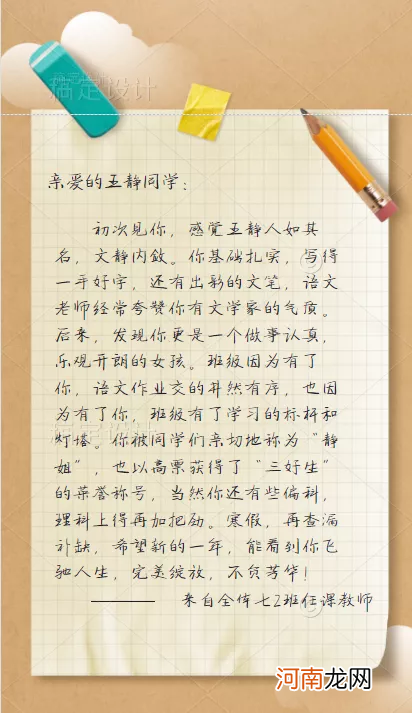 稿定设计
亲爱的王静同学：
初次见你，感觉王静人如其
名，文静内敛。你基础扎实，写得
一手好字，还有出彩的文笔，语文
老师经常夸赞你有文学家的气质。
后来，发现你更是一个做事认真，
乐观开朗的女孩。班级因为有了
你，语文作业交的井然有序，也因
为有了你，班级有了学习的标杆和
灯塔。你被同学们亲切地称为“静
姐”，也以高票获得了“三好生”
的荣誉称号，当然你还有些偏科，
理科上得再加把劲。寒假，再查漏
补缺，希望新的一年，能看到你飞
驰人生，完美绽放，不负芳华！
——— 来自全体七2班任课教师
河南龙网